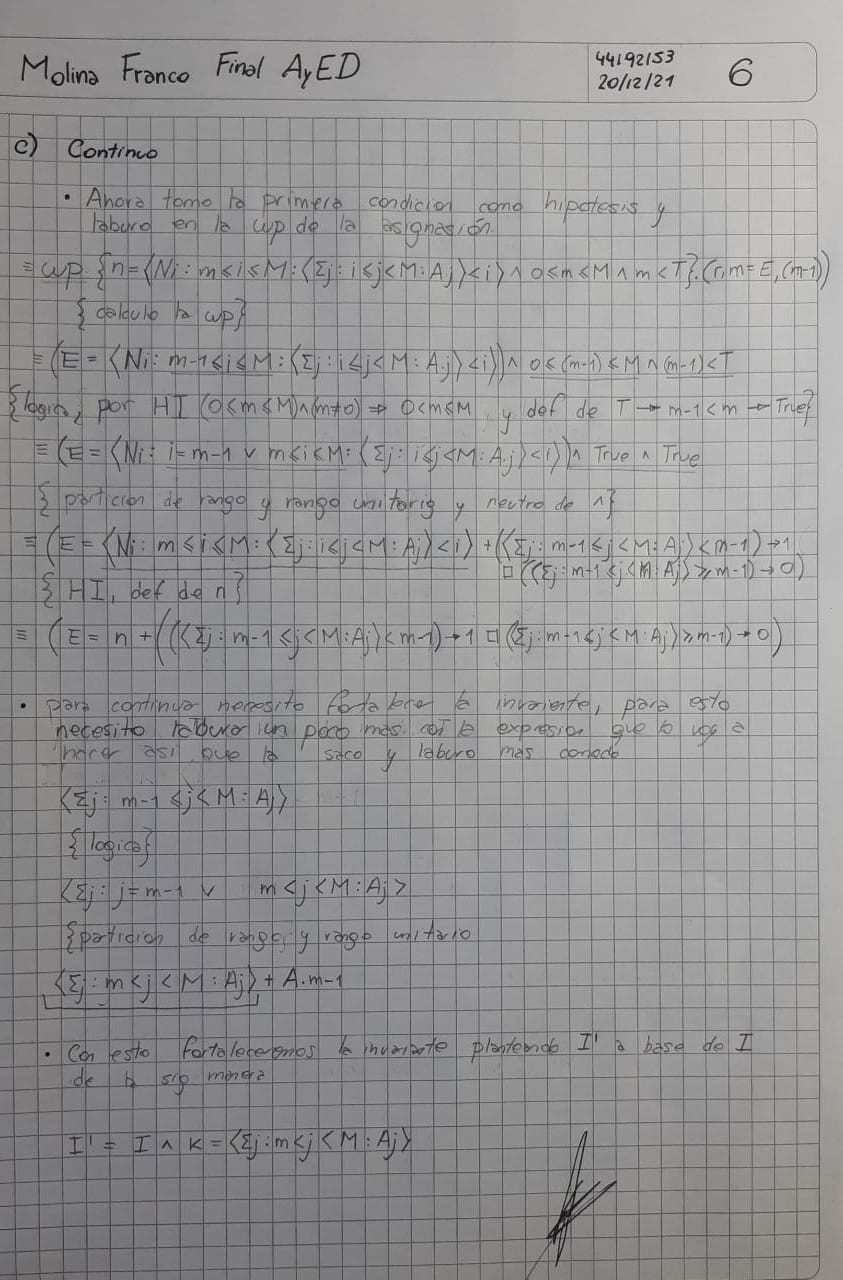 Molina Franco Final AyED
44192153
20/12/21
6
c) Continuo
• Ahora tomo la primera condicion como hipotesis y
laburo en la wp de la asignasión.
≡ wp {n=⟨Ni: m≤i≤M:⟨Σj: i≤j<M: A.j⟩<i⟩ ∧ 0≤m≤M ∧ m<T}.(r,m=E,(m-1))
{calculo la wp}
≡ (E=⟨Ni: m-1≤i≤M:⟨Σj: i≤j<M: A.j⟩<i⟩) ∧ 0≤(m-1)≤M ∧ (m-1)<T
{logica, por HI (0≤m≤M)∧(m≠0) ⇒ 0<m≤M y def de T → m-1<m → True}
≡ (E=⟨Ni: i=m-1 ∨ m≤i≤M:⟨Σj: i≤j<M: A.j⟩<i⟩) ∧ True ∧ True
{particion de rango y rango unitario y neutro de ∧}
≡ (E=⟨Ni: m≤i≤M:⟨Σj: i≤j<M: Aj⟩<i⟩ + (⟨Σj: m-1≤j<M: Aj⟩<m-1)→1
□ (⟨Σj: m-1≤j<M: Aj⟩≥m-1)→0)
{HI, def de n}
≡ (E= n + ((⟨Σj: m-1≤j<M: Aj⟩<m-1)→1 □ (Σj: m-1≤j<M: Aj⟩≥m-1)→0)
• para continuar necesito fortalecer la invariente, para esto
necesito laburar un poco mas con la expresion que lo voy a
hacer asi que la saco y laburo mas comodo
⟨Σj: m-1≤j<M: Aj⟩
{logica}
⟨Σj: j=m-1 ∨ m≤j<M: Aj>
{particion de rango, y rango unitario
⟨Σj: m≤j<M: Aj⟩ + A.m-1
• Con esto fortaleceremos la invariante planteando I' a base de I
de la sig manera
I' = I ∧ K=⟨Σj: m≤j<M: Aj⟩